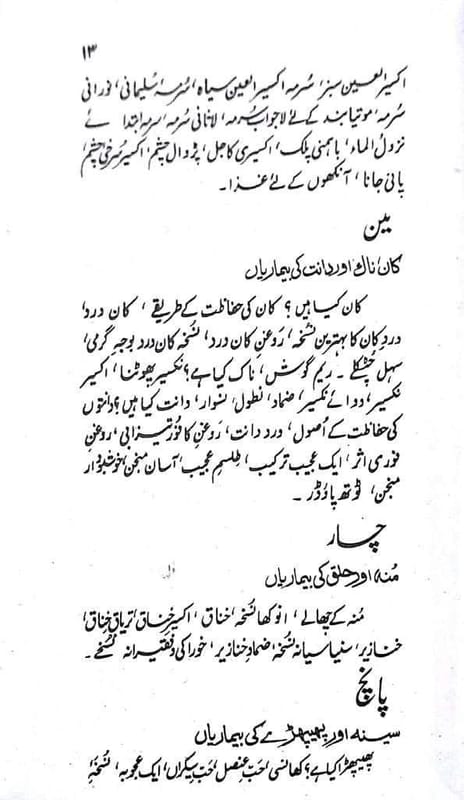 ۱۳
اکسیر العین سبز، سُرمہ اکسیر العین سیاہ، سُرمہ سُلیمانی، نورانی
سُرمہ، موتیا بند کے لئے لاجواب سُرمہ، لاثانی سُرمہ، سرمہ ابتدائے
نزول الماء، باہمنی پلک، اکسیری کاجل، پڑوال چشم، اکسیر سُرخی چشم،
پانی جانا، آنکھوں کے لئے غذا۔
تین
کان ناک اور دانت کی بیماریاں
کان کیا ہیں؟ کان کی حفاظت کے طریقے، کان درد،
دردِ کان کا بہترین نسخہ، روغنِ کان درد، نُسخہ کان درد بوجہ گرمی،
سہل چٹکلے۔ ریم گوش، ناک کیا ہے؟ نکسیر پھوٹنا، اکسیر
نکسیر، دوائے نکسیر، ضماد، نطول، نسوار، دانت کیا ہیں؟ دانتوں
کی حفاظت کے اُصول، درد دانت، روغنِ کافور تیزابی، روغنِ
فوری اثر، ایک عجیب ترکیب، طلسمِ عجیب، آسان منجن، خوشبودار
منجن، ٹوتھ پاؤڈر۔
چار
مُنہ اور حلق کی بیماریاں
مُنہ کے چھالے، انوکھا نسخہ، خناق، اکسیر خناق، تریاقِ خناق،
خنازیر، سنیاسیانہ نُسخہ، ضمادِ خنازیر، خوراکی و فقیرانہ نُسخے۔
پانچ
سینہ اور پھیپھڑے کی بیماریاں
پھیپھڑا کیا ہے؟ کھانسی، حَبِّ عنصل، حَبِّ بیکراں، ایک عجوبہ نُسخہ،